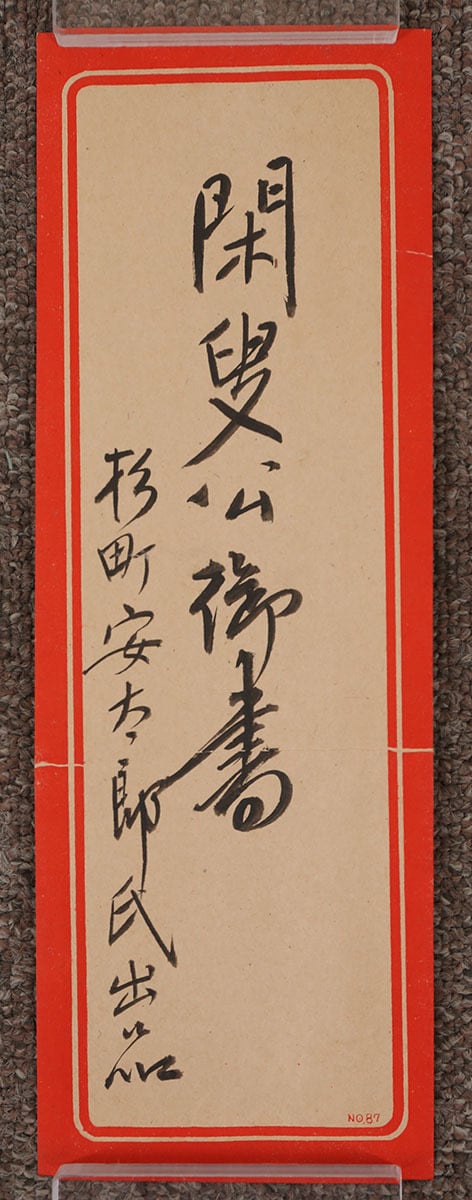 閑叟公御書
杉町安太郎氏出品
NO.87